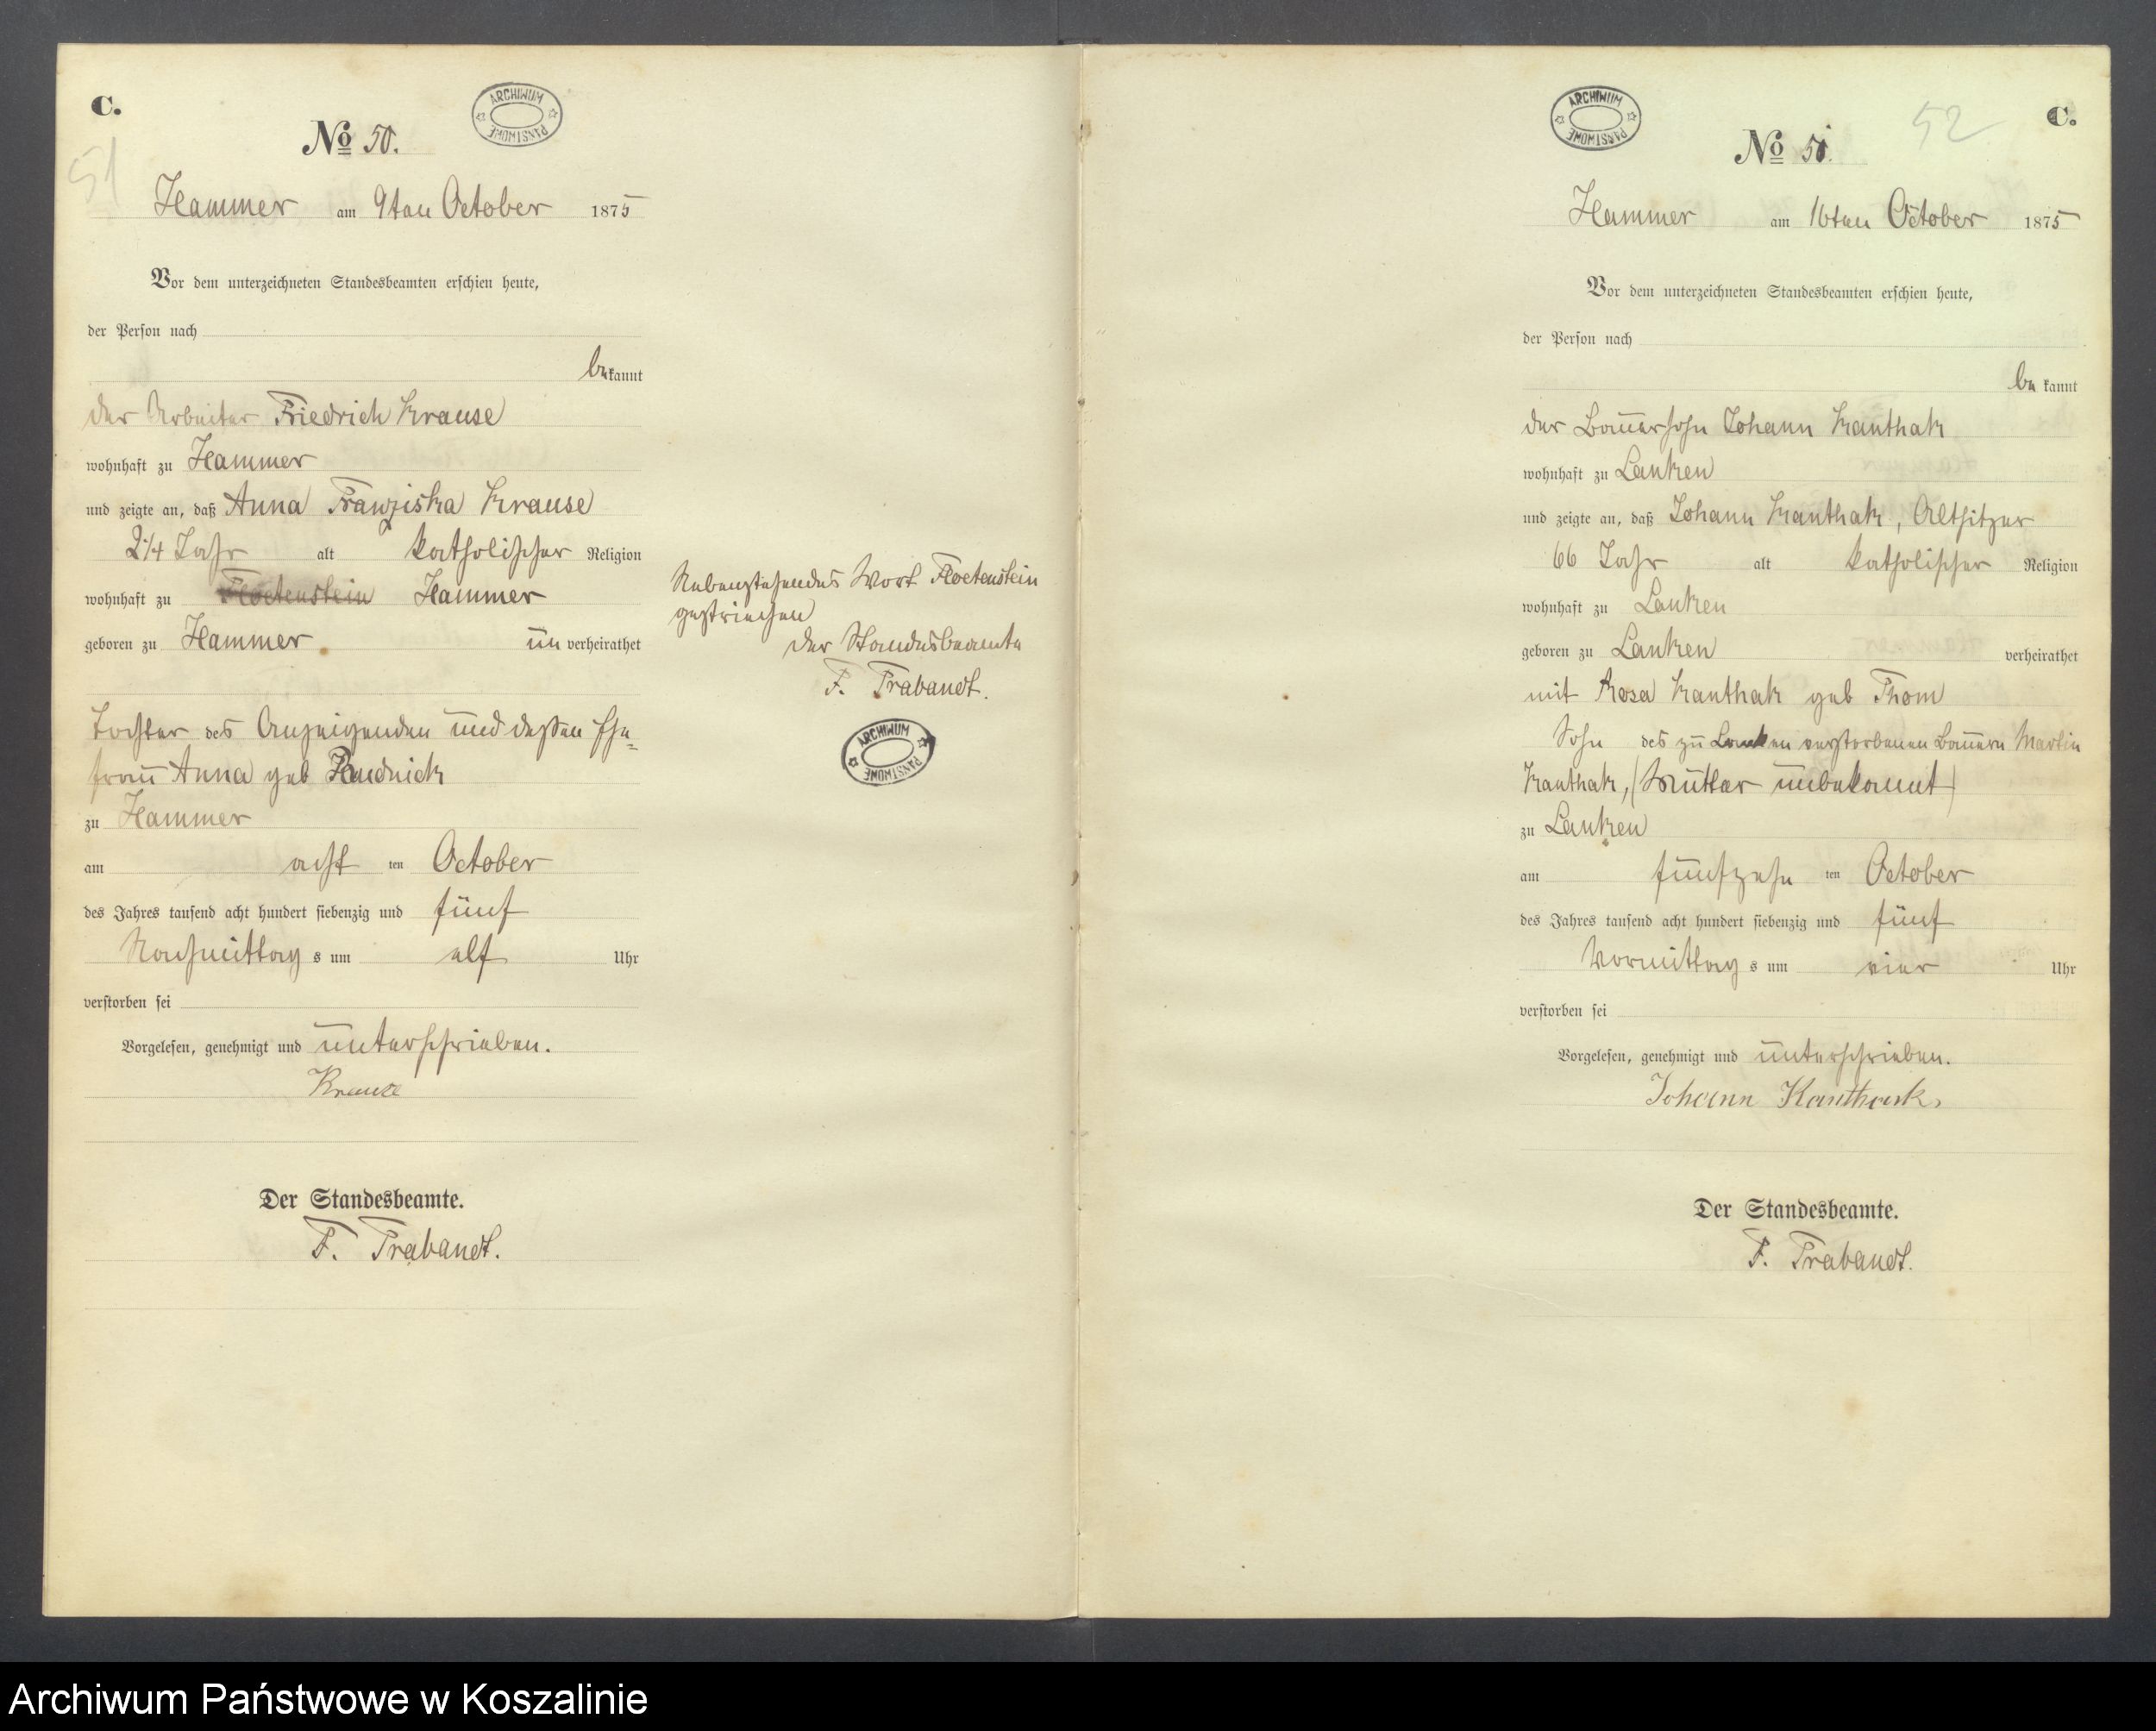 C.
51
No 50.
ARCHIWUM PAŃSTWOWE
Hammer am 9ten October 1875
Vor dem unterzeichneten Standesbeamten erschien heute,
der Person nach
bekannt
der Arbeiter Friedrich Krause
wohnhaft zu Hammer
und zeigte an, daß Anna Franziska Krause
2 1/4 Jahr alt katholischer Religion
wohnhaft zu Floetenstein Hammer
geboren zu Hammer un verheirathet
Tochter des Anzeigenden und dessen Ehe=
frau Anna geb Rudnick
zu Hammer
am acht ten October
des Jahres tausend acht hundert siebenzig und fünf
Nachmittag s um elf Uhr
verstorben sei
Vorgelesen, genehmigt und unterschrieben.
Krause
Der Standesbeamte.
F. Trabandt.
Nebenstehendes Wort Floetenstein
gestrichen
Der Standesbeamte
F. Trabandt.
ARCHIWUM PAŃSTWOWE
ARCHIWUM PAŃSTWOWE
52
C.
No 51.
Hammer am 16ten October 1875
Vor dem unterzeichneten Standesbeamten erschien heute,
der Person nach
be kannt
der Bauersohn Johann Kanthak
wohnhaft zu Lanken
und zeigte an, daß Johann Kanthak, Altsitzer
66 Jahr alt katholischer Religion
wohnhaft zu Lanken
geboren zu Lanken verheirathet
mit Rosa Kanthak geb Thom
Sohn des zu Lanken verstorbenen Bauern Martin
Kanthak, (Mutter unbekannt)
zu Lanken
am fünfzehn ten October
des Jahres tausend acht hundert siebenzig und fünf
Vormittag s um vier Uhr
verstorben sei
Vorgelesen, genehmigt und unterschrieben.
Johann Kanthack
Der Standesbeamte.
F. Trabandt.
Archiwum Państwowe w Koszalinie